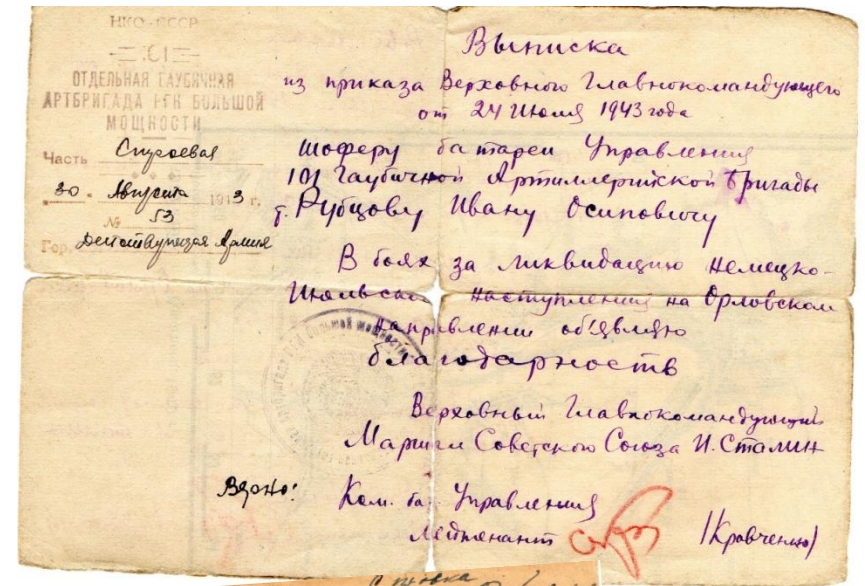 НКО-СССР
101
ОТДЕЛЬНАЯ ГАУБИЧНАЯ
АРТБРИГАДА РГК БОЛЬШОЙ
МОЩНОСТИ
Часть Строевая
30 Августа 1943 г.
№ 53
Гор. Действующая Армия
Выписка
из приказа Верховного Главнокомандующего
от 24 Июля 1943 года
шоферу батареи Управления
101 Гаубичной Артиллерийской Бригады
т. Рубцову Ивану Осиповичу
В боях за ликвидацию Немецко-
Июльского наступления на Орловском
направлении об'являю
благодарность
Верховный Главнокомандующий
Маршал Советского Союза И. Сталин
Верно: Ком. бат. Управления
лейтенант /Кравченко/